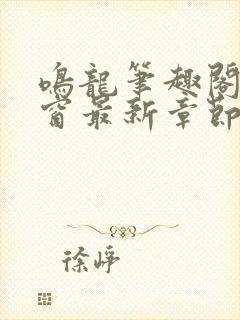 鳴龍筆趣閣
窗最新章節
徐崢